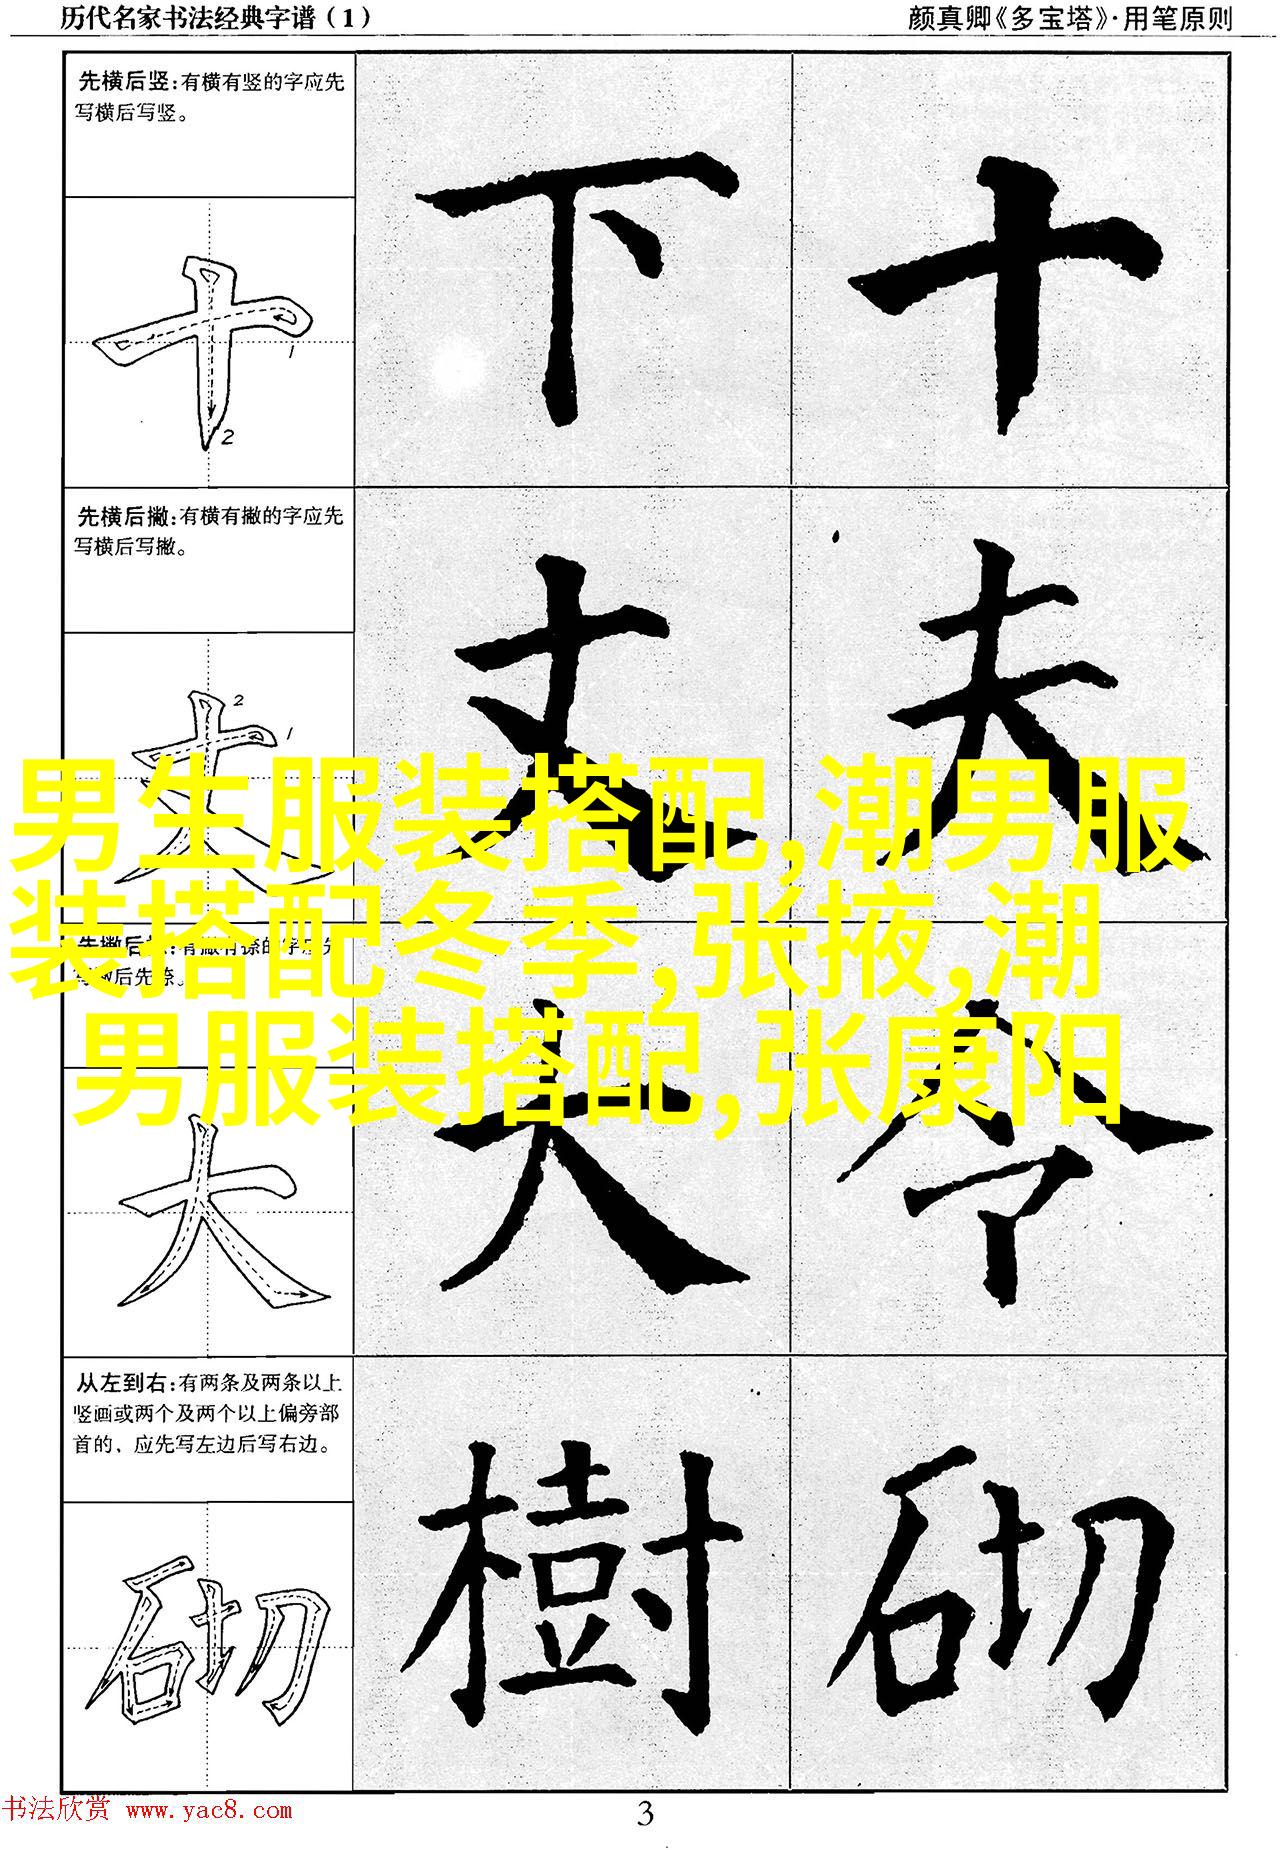 历代名家书法经典字谱（1）
颜真卿《多宝塔》·用笔原则
先横后竖：有横有竖的字应先
写横后写竖。
下
十
1
2
先横后撇：有横有撇的字应先
写横后写撇。
丈
夫
2
1
男生服装搭配,潮男服
装搭配冬季,张掖,潮
男服装搭配,张康阳
先撇后捺：有撇有捺的字应先
写撇后先捺。
大
令
从左到右：有两条及两条以上
竖画或两个及两个以上偏旁部
首的，应先写左边后写右边。
樹
砌
书法欣赏 www.yac8.com
3